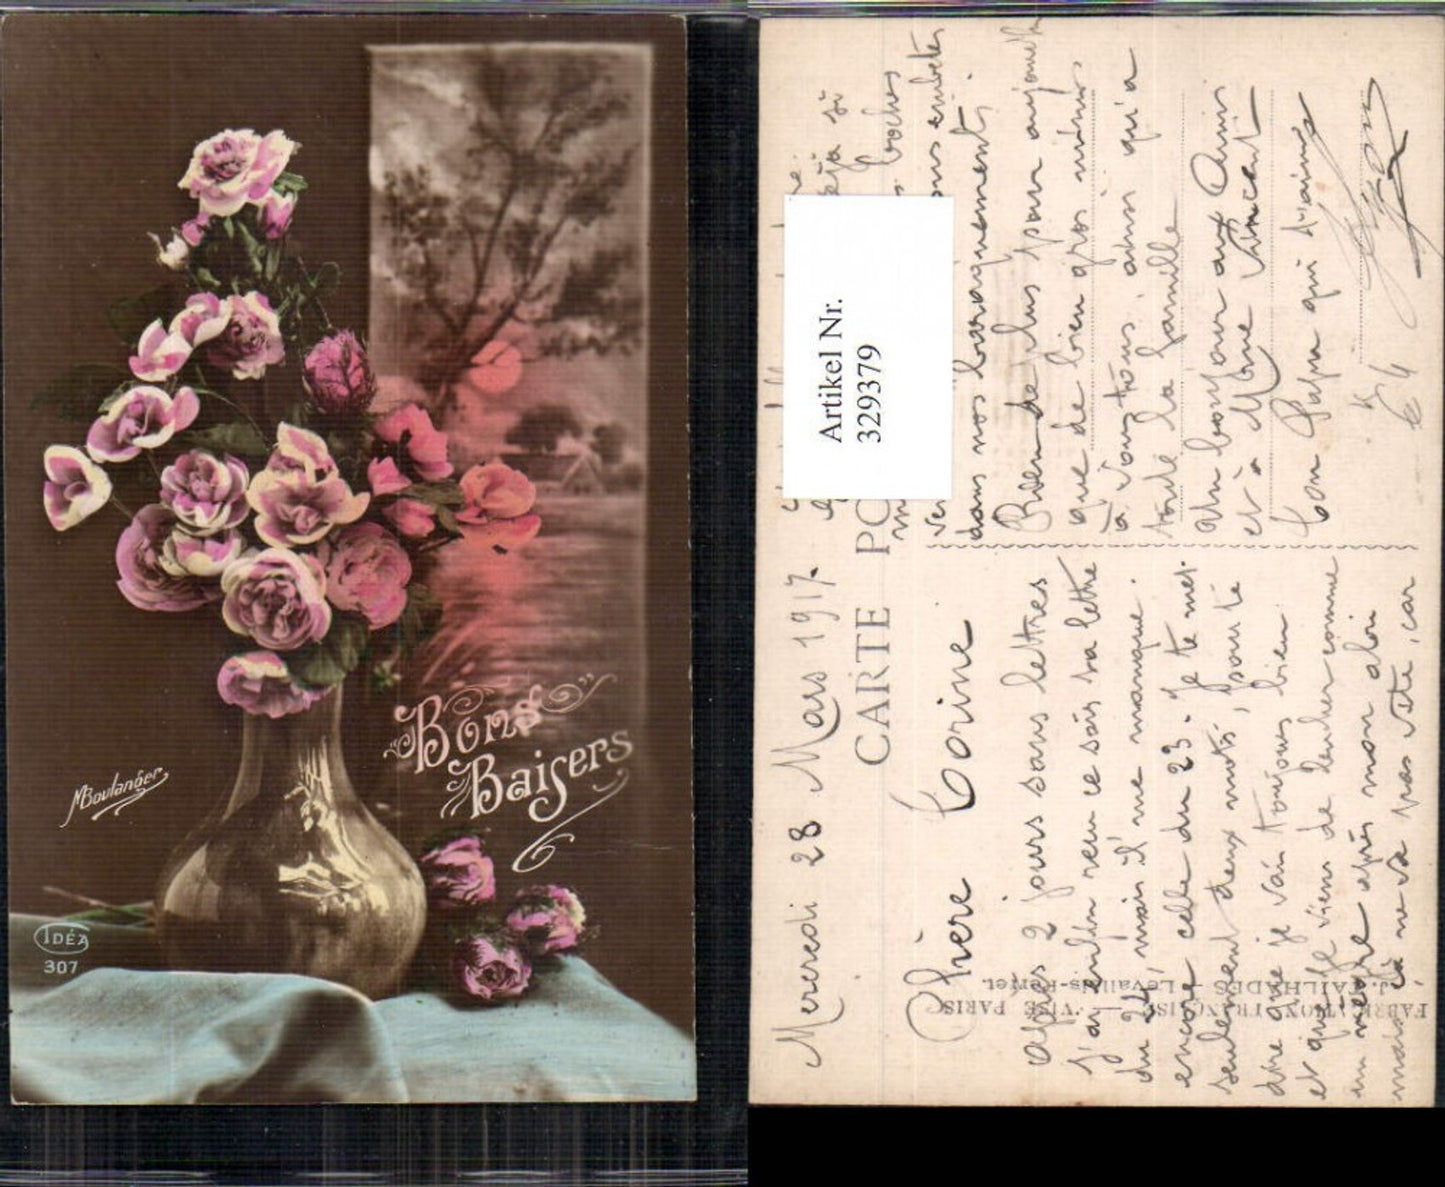 Bons
Baisers
MBoulanger
IDÉA
307
Artikel Nr.
329379
CARTE PO
FABRICATION FRANÇAISE — VIVE PARIS
J. TAILHADES - Levallois-Perret
Mercredi 28 Mars 1917.
Chère Corine
après 2 jours sans lettres
j'ai enfin reçu ce soir ta lettre
du 24, mais il me manque
encore celle du 23. Je te met
seulement deux mots, pour te
dire que je vais toujours bien
et que je viens de toucher comme
un nègre après mon
mais çà ne va pas vite, car
déjà si
boches
embêter
dans nos baraquements.
Rien de plus pour aujourd'h
que de bien gros mimis
à vous tous, ainsi qu'à
toute la famille
Un bonjour aux Amis
et à Mme Vincent
Ton Papa qui t'aime